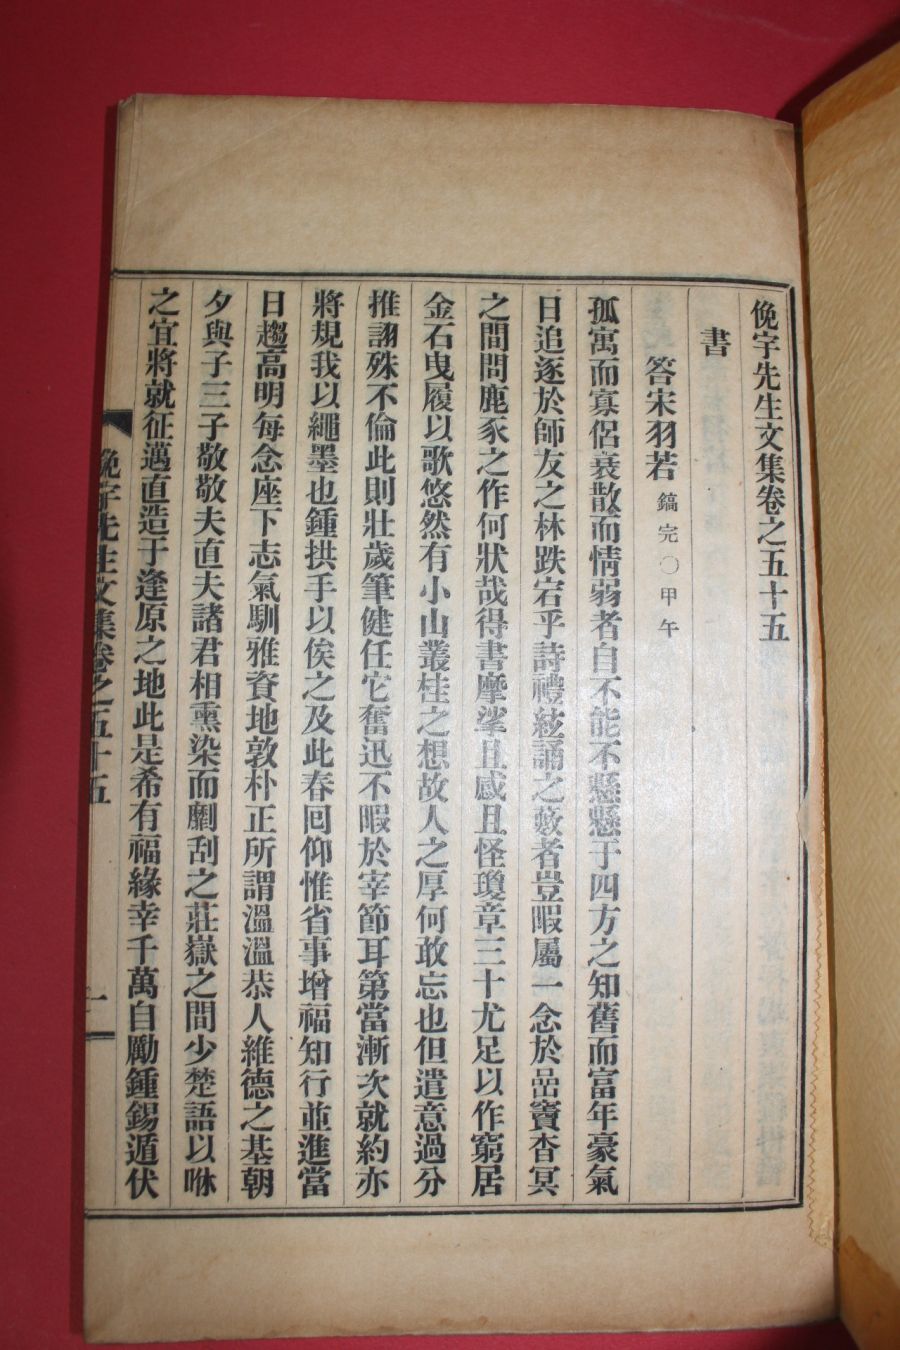 俛宇先生文集卷之五十五
書
答宋羽若 鎬完〇甲午
孤寓而寡侶衰散而情弱者自不能不懸懸于四方之知舊而富年豪氣
日追逐於師友之林跌宕乎詩禮絃誦之薮者豈暇屬一念於嵒竇杳冥
之間問鹿豕之作何狀哉得書摩挲且感且怪瓊章三十尤足以作窮居
金石曳履以歌悠然有小山叢桂之想故人之厚何敢忘也但遣意過分
推詡殊不倫此則壯歲筆健任它奮迅不暇於宰節耳第當漸次就約亦
將規我以繩墨也鍾拱手以俟之及此春回仰惟省事增福知行並進當
日趨高明每念座下志氣馴雅資地敦朴正所謂溫溫恭人維德之基朝
夕與子三子敬敬夫直夫諸君相熏染而劘刮之莊嶽之間少楚語以咻
之宜將就征邁直造于逢原之地此是希有福緣幸千萬自勵鍾錫遁伏
俛宇先生文集卷之五十五
一